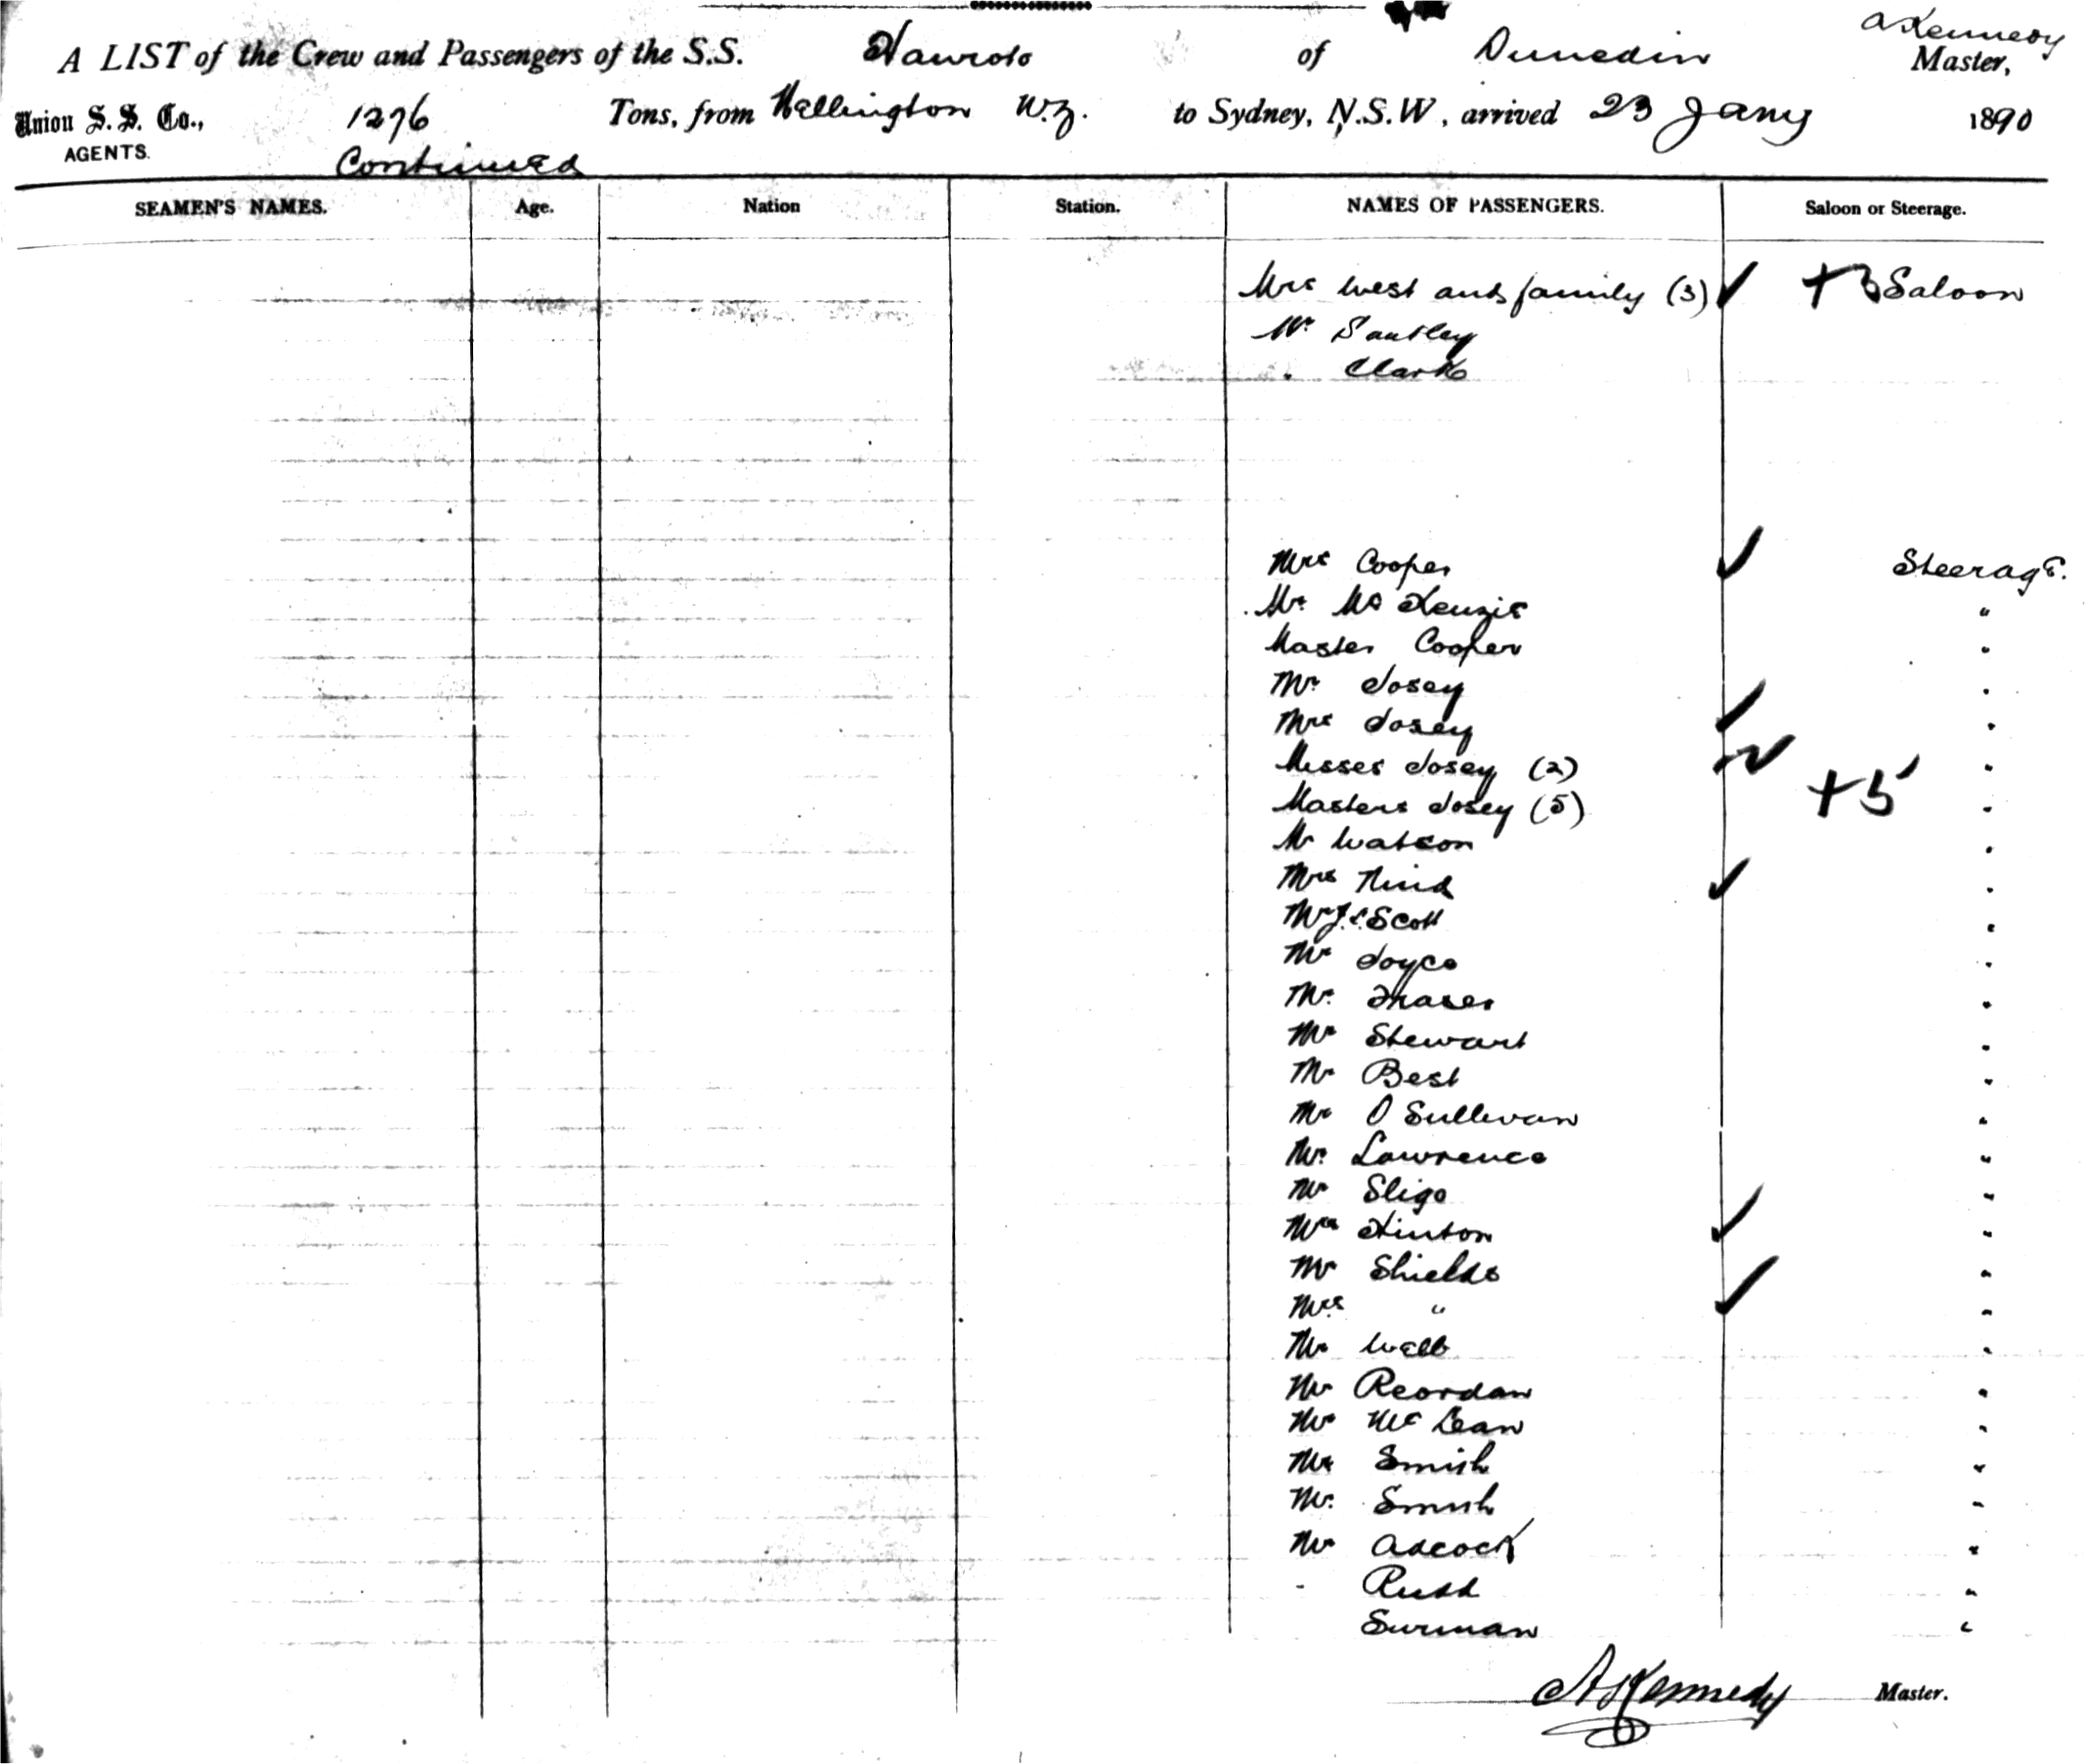 A LIST of the Crew and Passengers of the S.S. Hauroto of Dunedin A Kennedy Master,
Union S. S. Co., AGENTS. 1276 Tons, from Wellington N.Z. to Sydney, N.S.W, arrived 23 Jany 1890
Continued
SEAMEN'S NAMES. Age. Nation Station. NAMES OF PASSENGERS. Saloon or Steerage.
Mrs West and family (3) ✓ +3 Saloon
Mr Santley
" Clark
Mrs Cooper ✓ Steerage.
Mr McKenzie "
Master Cooper "
Mr Josey "
Mrs Josey ✓ "
Misses Josey (2) "
Masters Josey (5) +5 "
Mr Watson "
Mrs Nind ✓ "
Mr J. Scott "
Mr Joyce "
Mr Fraser "
Mr Stewart "
Mr Best "
Mr O Sullivan "
Mr Lawrence "
Mr Sligo "
Mrs Hinton ✓ "
Mr Shields "
Mrs " ✓ "
Mr Webb "
Mr Reordan "
Mr McLean "
Mr Smith "
Mr Smith "
Mr Adcock "
" Rudd "
Surman "
A Kennedy Master.